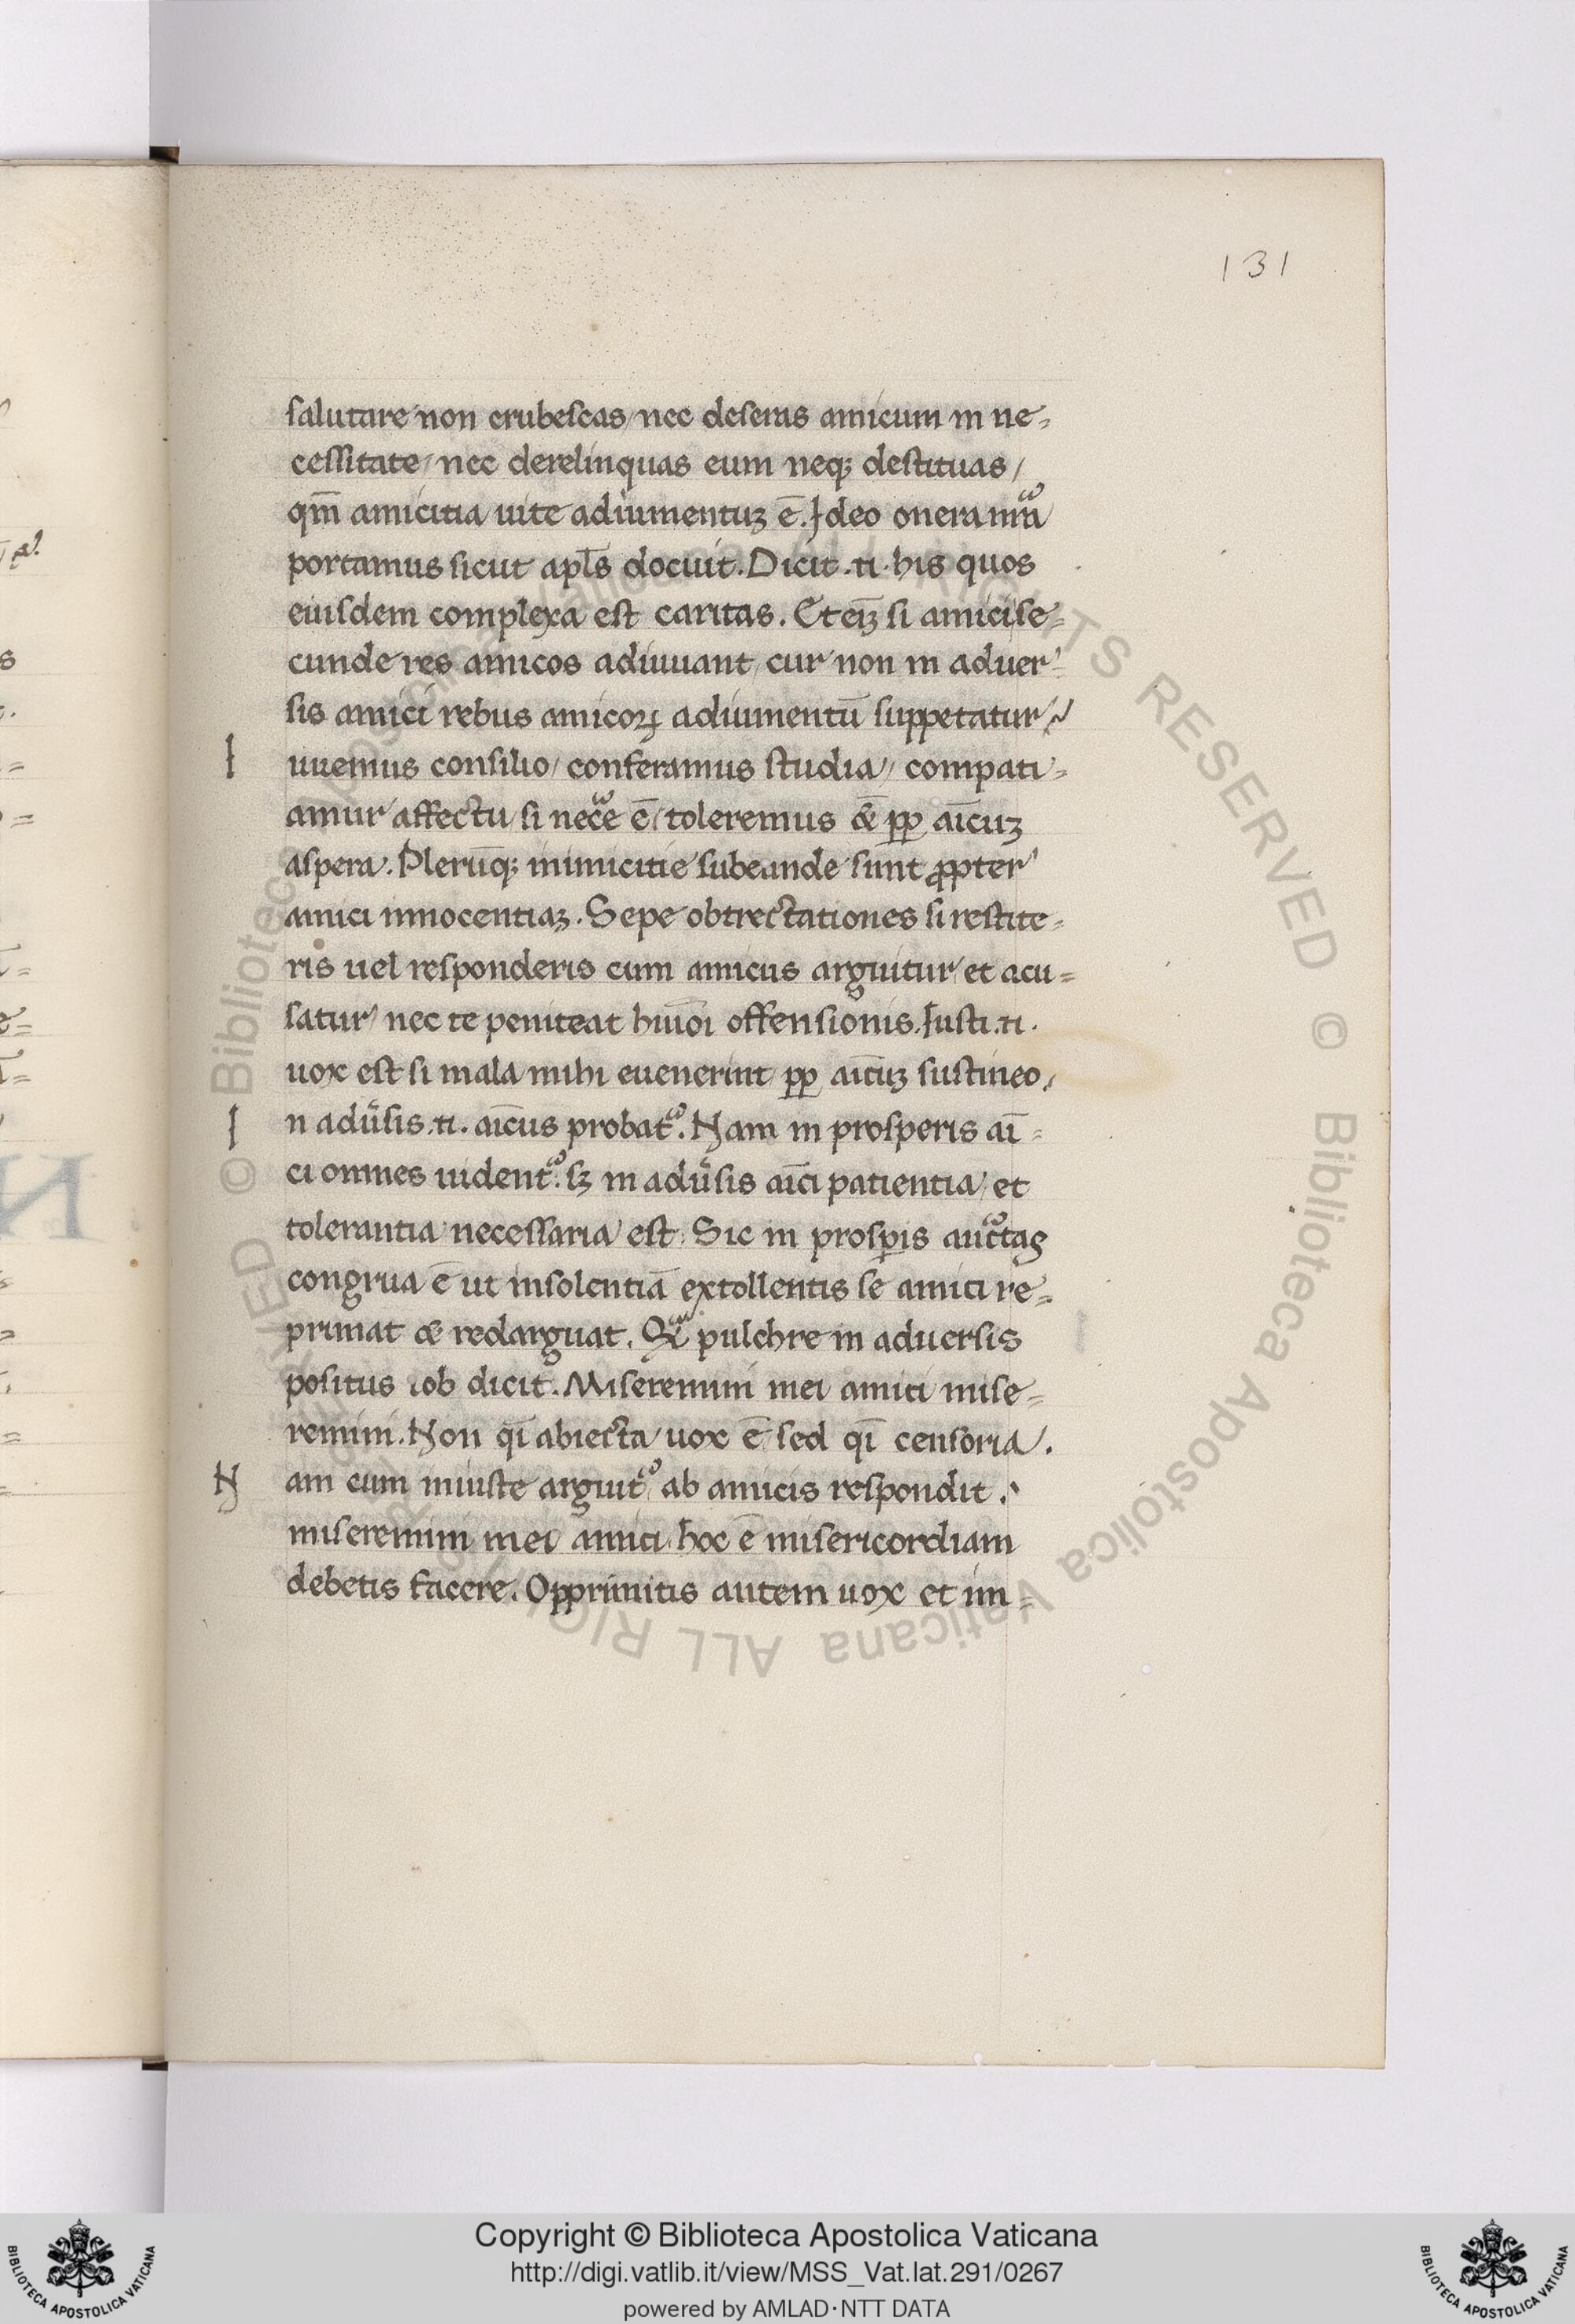 131
salutare non erubescas / nec deseras amicum in ne=
cessitate / nec derelinquas eum neqꝫ destituas /
qm̄ amicitia uite adiumentuꝫ ē. Ideo onera nr̄a
portamus sicut apl̄s docuit. Dicit .n. his quos
eiusdem complexa est caritas. Et eīꝫ si amici se=
cunde res amicos adiuuant / cur non in aduer=
sis amici rebus amicoꝝ adiumentū suppetatur /
I uuemus consilio / conferamus studia / compati=
amur affectu / si nece̅ ē / toleremus & pp̄ aīcuꝫ
aspera. Plerūqꝫ inimicitie subeunde sunt ꝓpter
amici innocentiaꝫ. Sepe obtrectationes si restite=
ris uel responderis cum amicus arguitur et acu=
satur / nec te peniteat hiūoi offensionis. Iusti .n.
uox est si mala mihi euenerint pp̄ aīcuꝫ sustineo /
I n adūsis .n. aīcus probat̄. Nam in prosperis aī=
ci omnes uident̄. sꝫ in adūsis aīci patientia / et
tolerantia necessaria est. Sic in prosꝑis auct̄tas
congrua ē ut insolentiā extollentis se amici re=
primat & redarguat. Qū pulchre in aduersis
positus iob dicit. Miseremini mei amici mise=
remini. Non qī abiecta uox ē sed qī censoria.
N am cum iniuste arguit̄ ab amicis respondit.
miseremini mei amici / hoc ē misericordiam
debetis facere. Opprimitis autem uox et im=
© Biblioteca Apostolica Vaticana ALL RIGHTS RESERVED
© Biblioteca Apostolica Vaticana ALL RIGHTS RESERVED
Copyright © Biblioteca Apostolica Vaticana
http://digi.vatlib.it/view/MSS_Vat.lat.291/0267
powered by AMLAD·NTT DATA
BIBLIOTECA APOSTOLICA VATICANA
BIBLIOTECA APOSTOLICA VATICANA